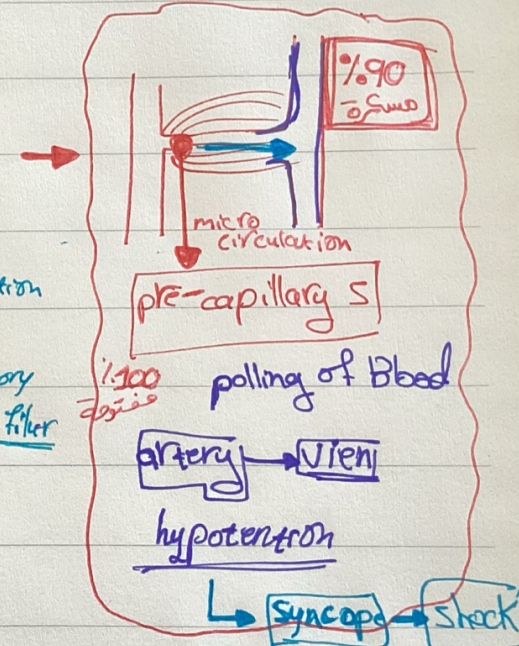 %90
مسكرة
micro
circulation
pre-capillary S
%100
مفتوحة
polling of Blood
artery → vien
hypotention
syncope → shock
tion
ory
filter